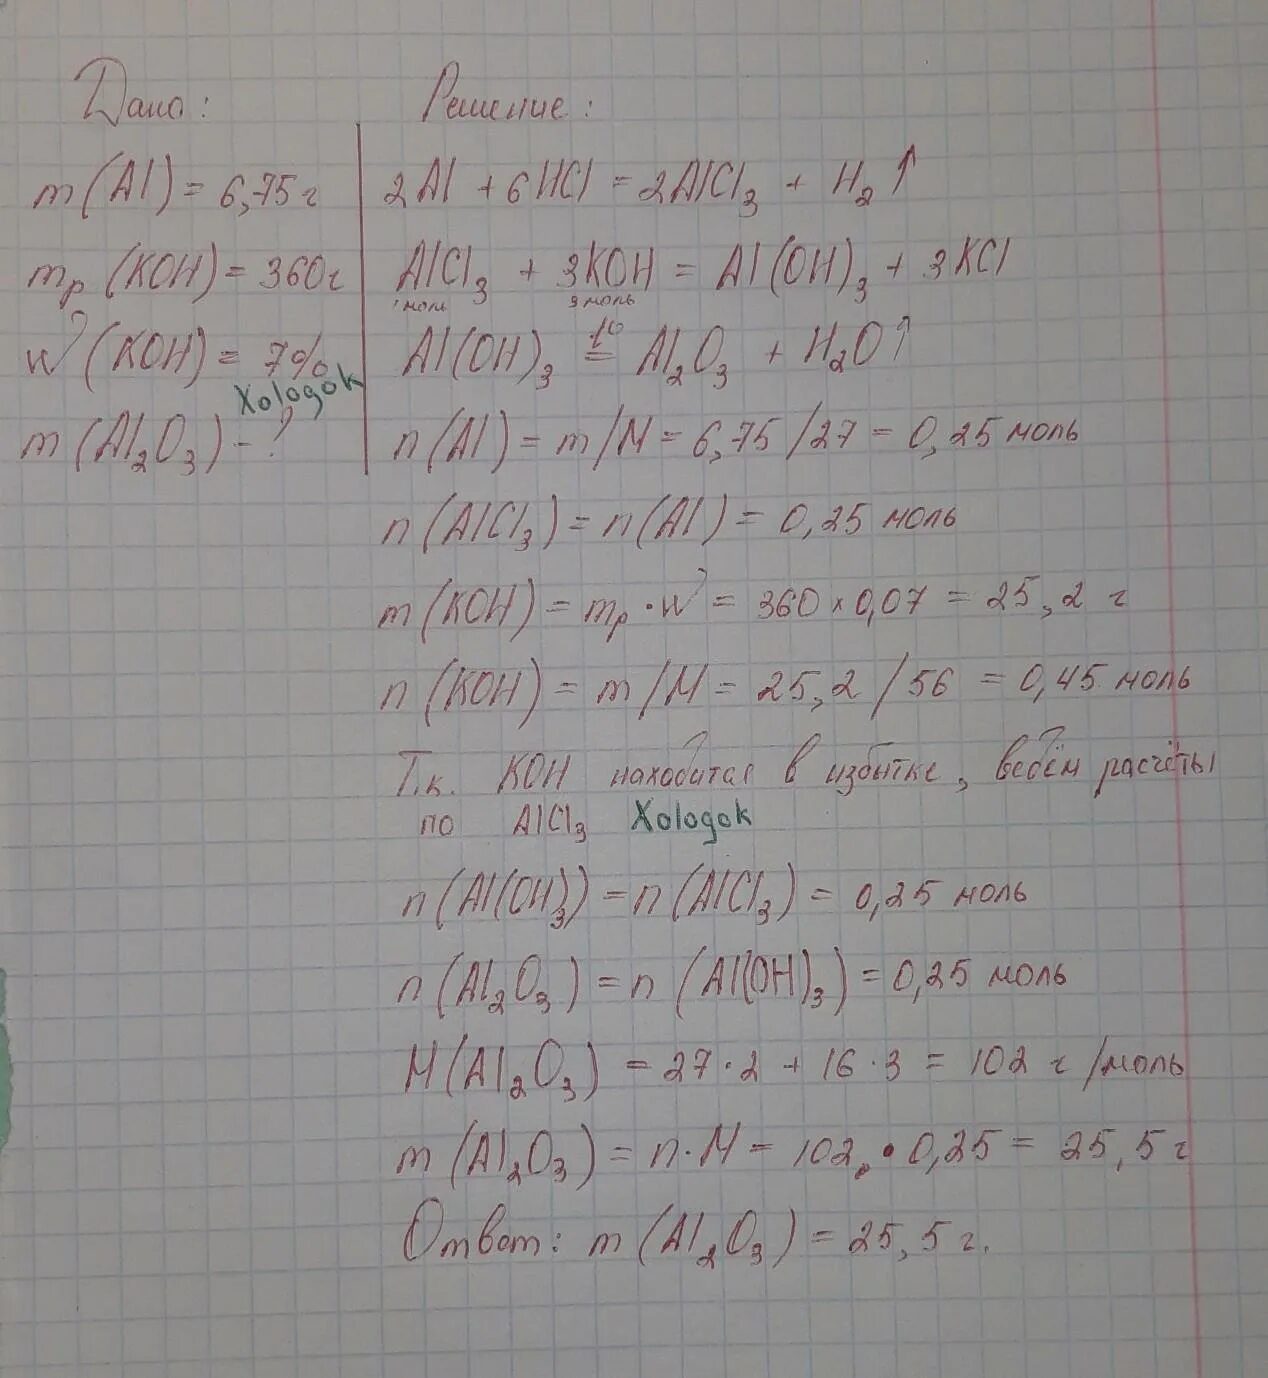 Дано:
m(Al) = 6,75 г
mр(KOH) = 360г
W(KOH) = 7%
Xologok
m(Al2O3) - ?
Решение:
2Al + 6HCl = 2AlCl3 + H2↑
AlCl3 + 3KOH = Al(OH)3 + 3KCl
1 моль 3 моль
Al(OH)3 t° = Al2O3 + H2O↑
n(Al) = m/M = 6,75/27 = 0,25 моль
n(AlCl3) = n(Al) = 0,25 моль
m(KOH) = mр · W = 360 × 0,07 = 25,2 г
n(KOH) = m/M = 25,2/56 = 0,45 моль
Т.к. KOH находится в избытке, ведём расчёты
по AlCl3 Xologok
n(Al(OH)3) = n(AlCl3) = 0,25 моль
n(Al2O3) = n(Al(OH)3) = 0,25 моль
M(Al2O3) = 27·2 + 16·3 = 102 г/моль
m(Al2O3) = n·M = 102 · 0,25 = 25,5 г
Ответ: m(Al2O3) = 25,5 г.